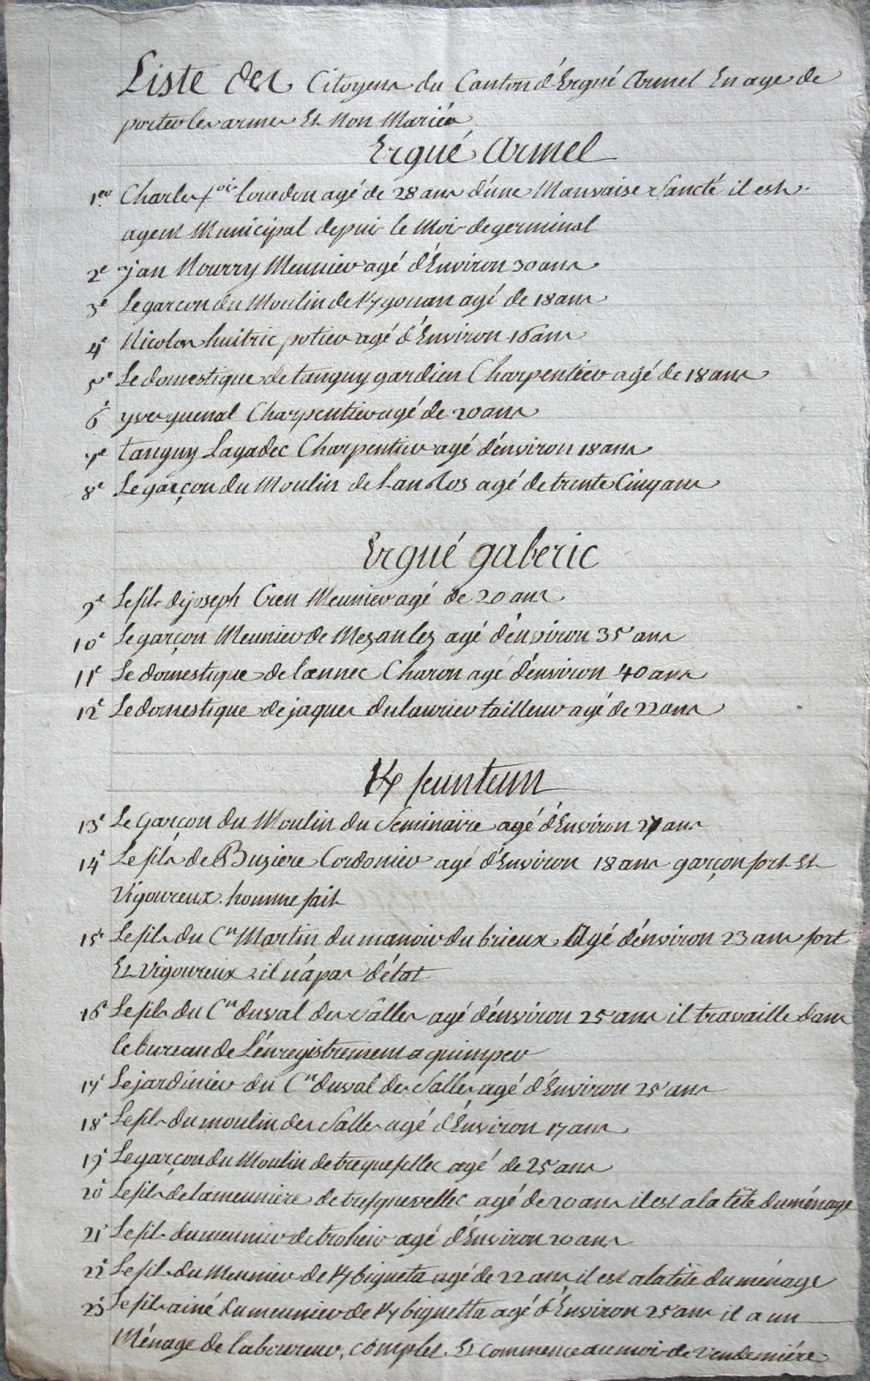 Liste des Citoyens du Canton d'Ergué Armel En age de
porter les armes Et Non Mariés
Ergué Armel
1er Charles fois loüedon agé de 28 ans d'une Mauvaise Sancté il est
agent Municipal depuis le Mois de germinal
2e jan Nourry Meunier agé d'Environ 30 ans
3e Le garcon du Moulin de Kgouan agé de 18 ans
4e Nicolas huitric potier agé d'Environ 16 ans
5e Le domestique de tanguy gardien Charpentier agé de 18 ans
6e yves guenal Charpentier agé de 20 ans
7e tanguy Lagadec Charpentier agé d'environ 18 ans
8e Le garçon du Moulin de Lanros agé de trente Cinq ans
Ergué gaberic
9e Le fils de joseph Cren Meunier agé de 20 ans
10e Le garçon Meunier de Mezanlez agé d'environ 35 ans
11e Le domestique de laennec Charon agé d'environ 40 ans
12e Le domestique de jaques dulaurier tailleur agé de 22 ans
K feuntun
13e Le garçon du Moulin du Seminaire agé d'Environ 27 ans
14e Le fils de Busiere Cordonier agé d'Environ 18 ans garçon fort Et
Vigoureux homme fait
15e Le fils du Cen Martin du manoir du brieux Agé d'environ 23 ans fort
Et Vigoureux il n'a pas d'état
16e Le fils du Cen duval des Salles agé d'environ 25 ans il travaille dans
le bureau de L'enregistrement a quimper
17e Le jardinier du Cen duval des Salles agé d'Environ 25 ans
18e Le fils du moulin des Salles agé d'Environ 17 ans
19e Le garçon du Moulin de treguefellec agé de 25 ans
20e Le fils de la meunière de tresguevellec agé de 20 ans il est a la tête du ménage
21e Le fils du meunier de troheir agé d'Environ 20 ans
22e Le fils du Meunier de K bigueta agé de 22 ans il est a la tête du ménage
23e Le fils ainé du meunier de K biguetta agé d'Environ 25 ans il a un
Ménage de laboureur, complet, Et commence au mois de Vendemiére